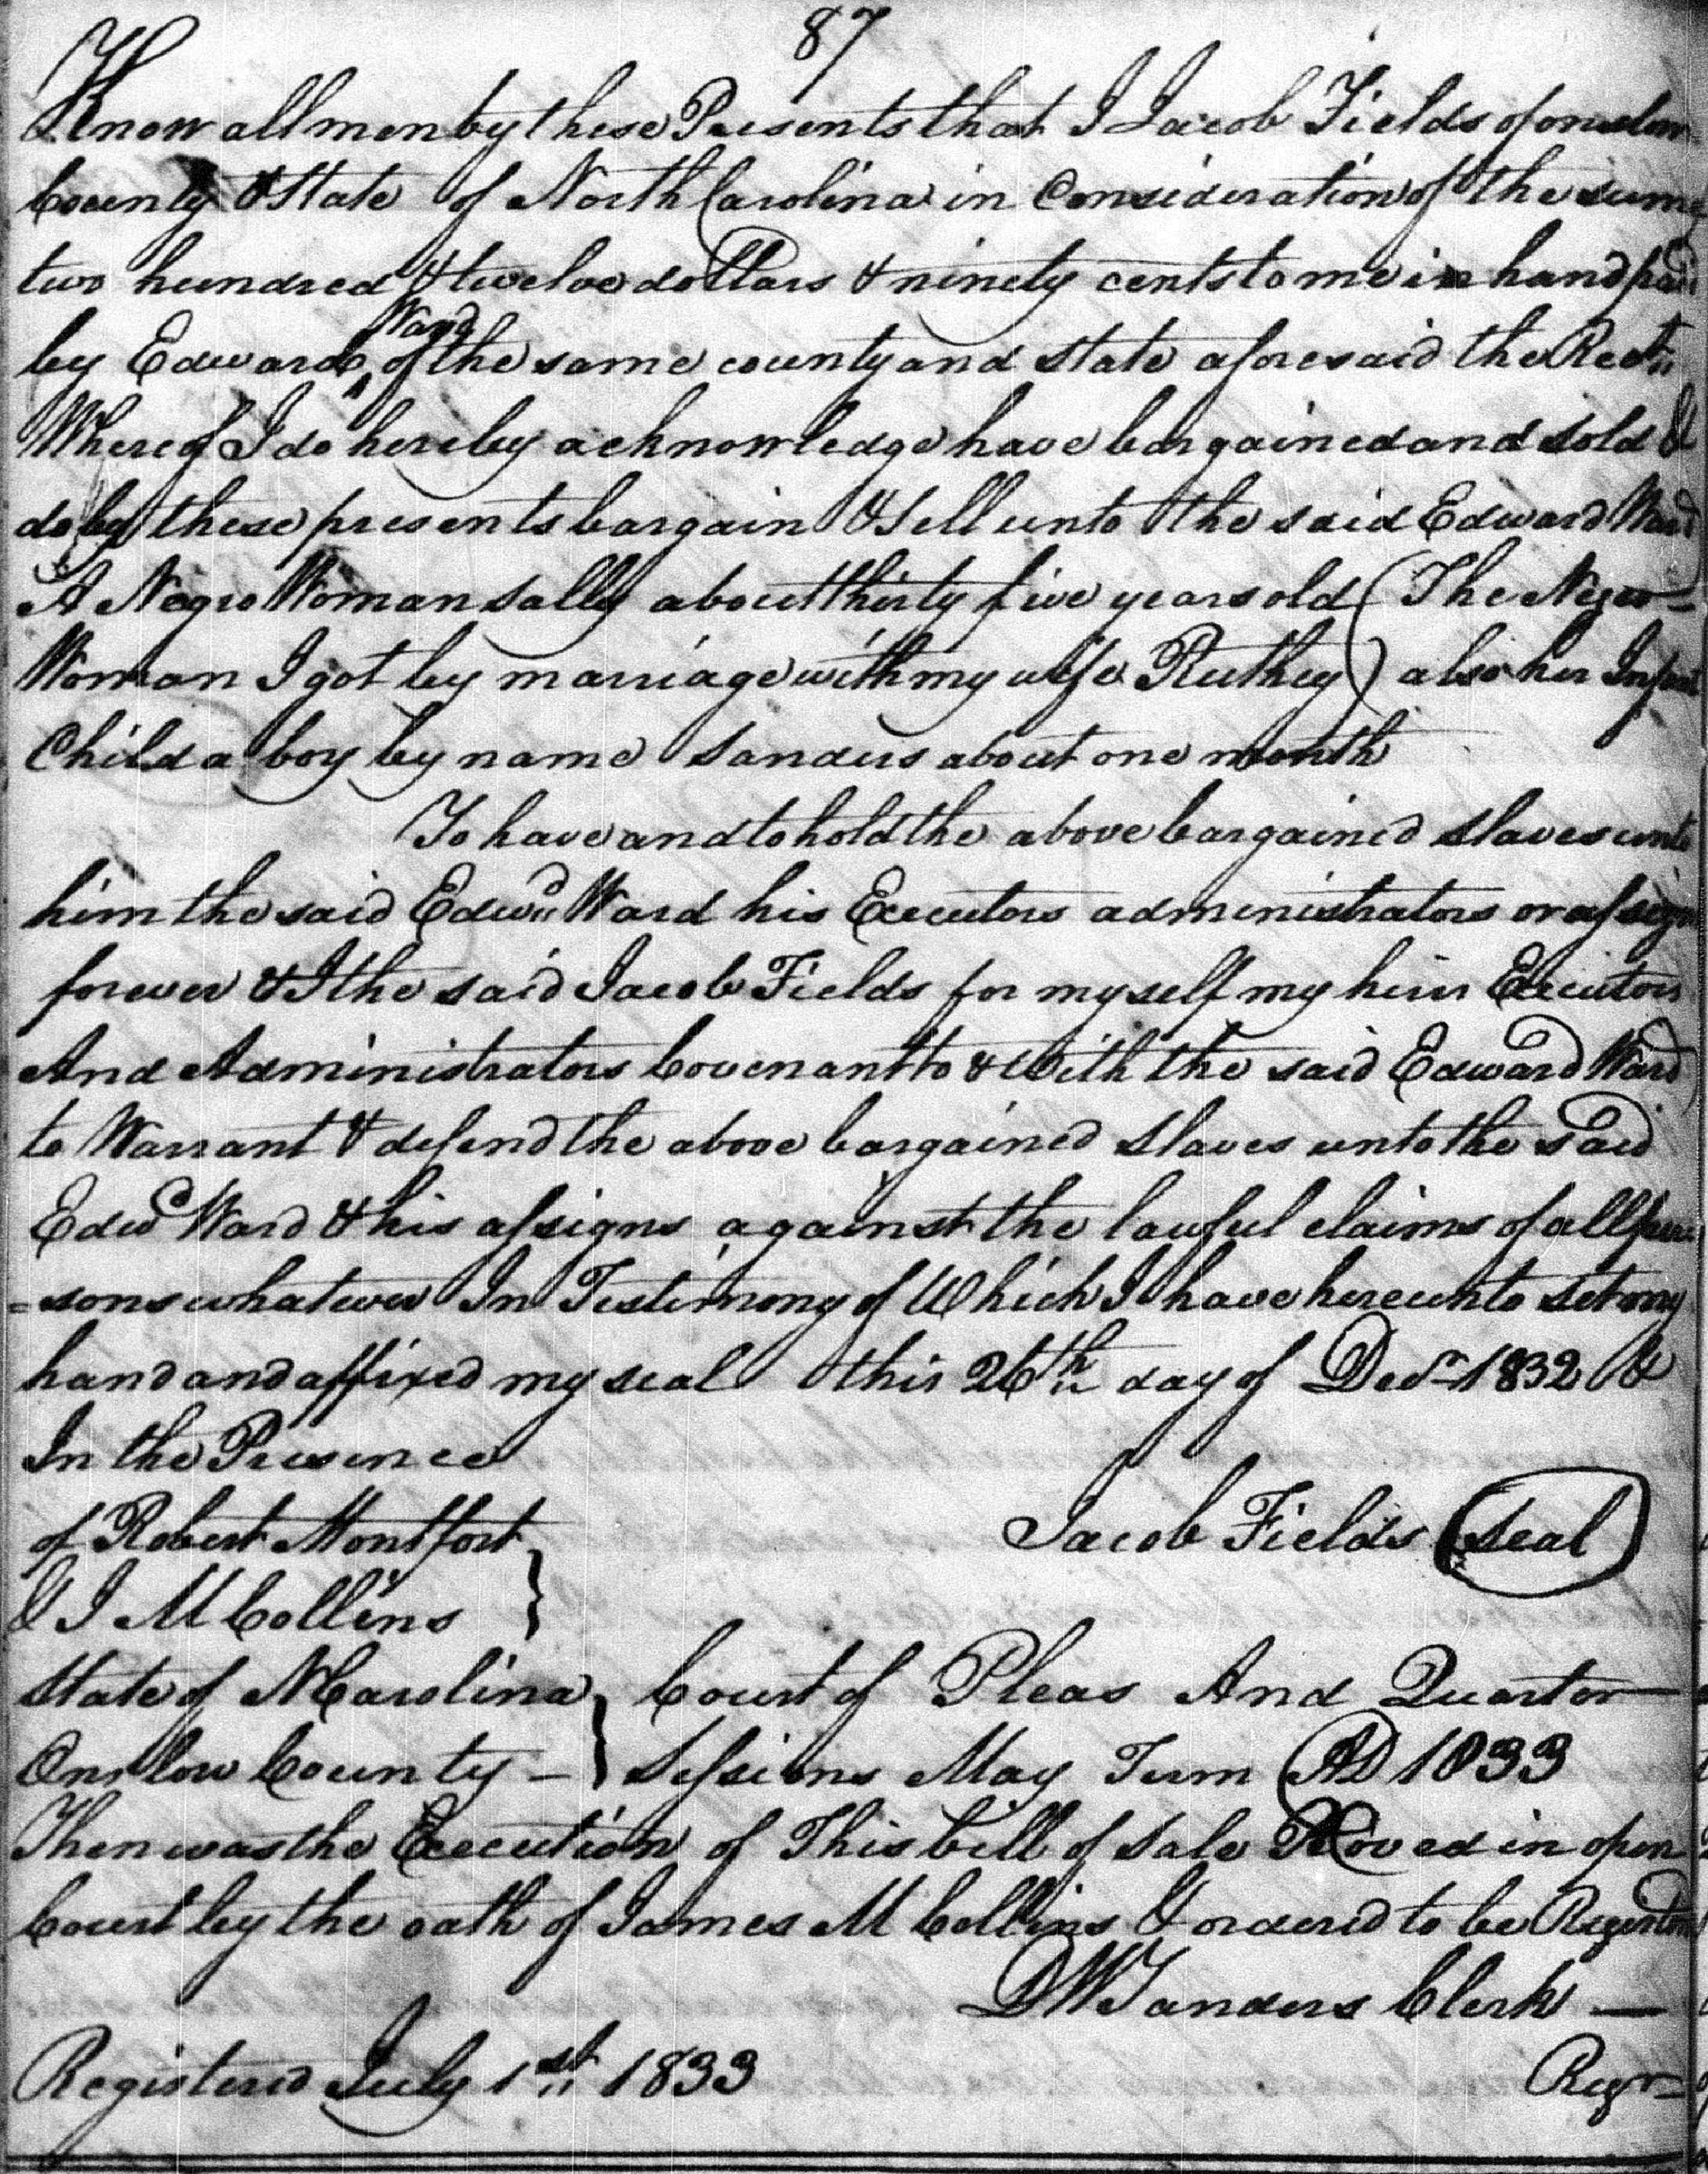 87
Know all men by these Presents that I Jacob Fields of onslow
County & State of North Carolina in Consideration of the sum
two hundred & twelve dollars & ninety cents to me in hand paid
Ward
by Edward of the same county and state aforesaid the Rect.
Whereof I do hereby acknowledge have bargained and sold &
do by these presents bargain & Sell unto the said Edward Ward
A Negro Woman Sally about thirty five years old (The Negro
Woman I got by marriage with my wife Ruthey) also her Infant
Child a boy by name Sanders about one month
To have and to hold the above bargained slaves unto
him the said Edwd Ward his Executors administrators or assigns
forever & I the said Jacob Fields for myself my heirs Executors
And Administrators Covenant to & With the said Edward Ward
to Warrant & defend the above bargained slaves unto the said
Edwd Ward & his assigns against the lawful claims of all per
=sons whatever In Testimony of Which I have hereunto set my
hand and affixed my seal this 26th day of Decr 1832 &
In the Presence
of Robert Montfort
Jacob Fields (seal)
& J M Collins }
State of N Carolina } Court of Pleas And Quarter
Onslow County – } Sessions May Term AD 1833
Then was the Execution of This bill of Sale Proved in open
Court by the oath of James M Collins & ordered to be Registered
D W Sanders Clerk —
Registered July 1st 1833 Regr